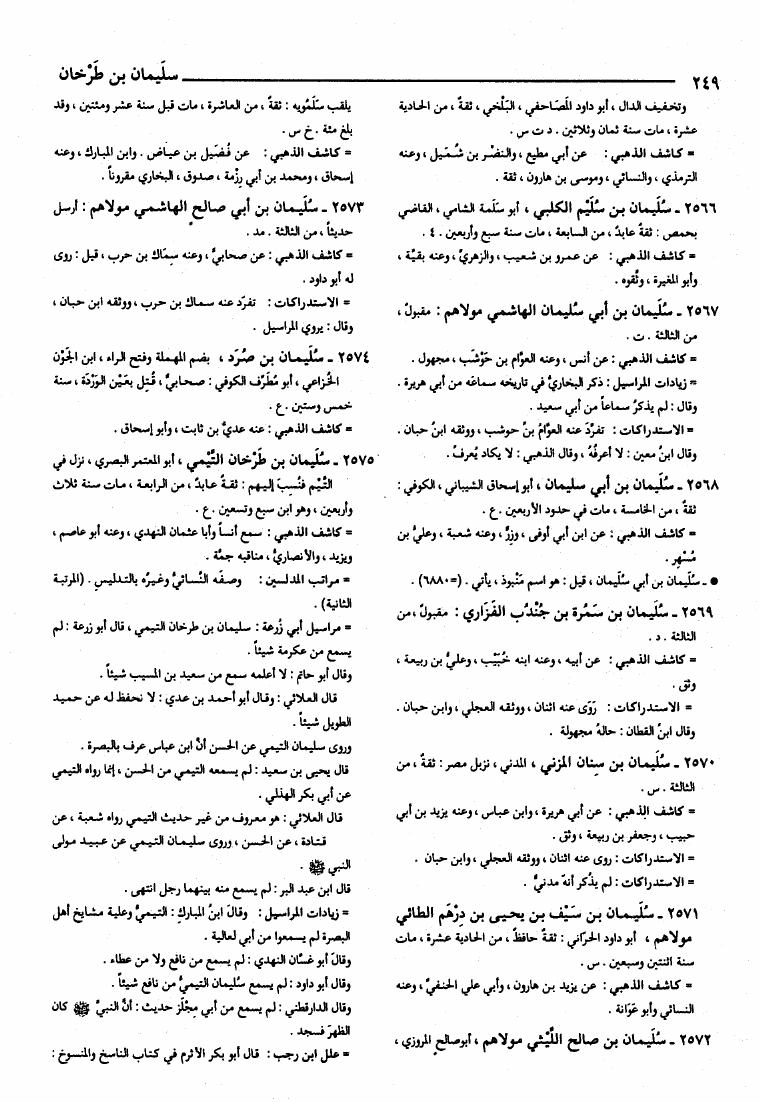 ٢٤٩ سليمان بن طَرْخان
وتخفيف الدال ، أبو داود المَصَاحفي ، البَلْخي ، ثقةٌ ، من الحادية
عشرة ، مات سنة ثمان وثلاثين . د ت س .
= كاشف الذهبي : عن أبي مطيع ، والنضْر بن شُميل ، وعنه
الترمذي ، والنسائي ، وموسى بن هارون ، ثقة .
٢٥٦٦ ـ سُلَيْمان بن سُلَيْم الكلبي ، أبو سلَمة الشامي ، القاضي
بحمص : ثقةٌ عابدٌ ، من السابعة ، مات سنة سبع وأربعين . ٤ .
= كاشف الذهبي : عن عمرو بن شعيب ، والزهريِّ ، وعنه بقيَّة ،
وأبو المغيرة ، وثَّقوه .
٢٥٦٧ ـ سُليمان بن أبي سُليمان الهاشمي مولاهم : مقبولٌ ،
من الثالثة . ت .
= كاشف الذهبي : عن أنس ، وعنه العوَّام بن حَوْشَب ، مجهول .
= زيادات المراسيل : ذكر البخاريُّ في تاريخه سماعَه من أبي هريرة .
وقال : لم يذكرْ سماعاً من أبي سعيد .
= الاستدراكات : تفرَّدَ عنه العوَّامُ بنُ حوشب ، ووثقه ابنُ حبان .
وقال ابنُ معين : لا أعرفُهُ ، وقال الذهبي : لا يكاد يُعرفُ .
٢٥٦٨ ـ سُليمان بن أبي سليمان ، أبو إسحاق الشيباني ، الكوفي :
ثقةٌ ، من الخامسة ، مات في حدود الأربعين . ع .
= كاشف الذهبي : عن ابن أبي أوفى ، وزِرٍّ ، وعنه شعبة ، وعليُّ بن
مُسْهِر .
● ـ سُليمان بن أبي سُليمان ، قيل : هو اسم مَنْبوذ ، يأتي . (=٦٨٨٠) .
٢٥٦٩ ـ سُليمان بن سَمُرة بن جُنْدُب الفَزَاري : مقبولٌ ، من
الثالثة . د .
= كاشف الذهبي : عن أبيه ، وعنه ابنه خُبَيْب ، وعليُّ بن ربيعة ،
وثق .
= الاستدراكات : رَوَى عنه اثنان ، ووثقه العجلي ، وابن حبان .
وقال ابنُ القطان : حالُهُ مجهولة .
٢٥٧٠ ـ سُليمان بن سِنان المزني ، المدني ، نزيل مصر : ثقةٌ ، من
الثالثة . س .
= كاشف الذهبي : عن أبي هريرة ، وابن عباس ، وعنه يزيد بن أبي
حبيب ، وجعفر بن ربيعة ، وثق .
= الاستدراكات : روى عنه اثنان ، ووثقه العجلي ، وابن حبان .
= الاستدراكات : لم يذْكر أنه مدنيٌّ .
٢٥٧١ ـ سُليمان بن سَيْف بن يحيى بن دِرْهَم الطائي
مولاهم ، أبو داود الحرَّاني : ثقةٌ حافظٌ ، من الحادية عشرة ، مات
سنة اثنتين وسبعين . س .
= كاشف الذهبي : عن يزيد بن هارون ، وأبي علي الحنفيِّ ، وعنه
النسائي وأبو عَوَانة .
٢٥٧٢ ـ سُليمان بن صالح اللَّيْثي مولاهم ، أبوصالح المروزي ،
يلقب سَلَمُويه : ثقةٌ ، من العاشرة ، مات قبل سنة عشر ومئتين ، وقد
بلغ مئة . خ س .
= كاشف الذهبي : عن فُضَيل بن عياض . وابن المبارك ، وعنه
إسحاق ، ومحمد بن أبي رِزْمة ، صدوق ، البخاري مقروناً .
٢٥٧٣ ـ سُليمان بن أبي صالح الهاشمي مولاهم : أرسل
حديثاً ، من الثالثة . مد .
= كاشف الذهبي : عن صحابيٍّ ، وعنه سِمَاك بن حرب ، قيل : روى
له أبو داود .
= الاستدراكات : تفرَّد عنه سماك بن حرب ، ووثقه ابن حبان ،
وقال : يروي المراسيل .
٢٥٧٤ ـ سُليمان بن صُرَد ، بضم المهملة وفتح الراء ، ابن الجَوْن
الخُزاعي ، أبو مُطَرِّف الكوفي : صحابيٌّ ، قُتِل بعَيْن الوَرْدَة ، سنة
خمس وستين . ع .
= كاشف الذهبي : عنه عديُّ بن ثابت ، وأبو إسحاق .
٢٥٧٥ ـ سُليمان بن طَرْخان التَّيْمي ، أبو المعتمر البصري ، نزل في
التَّيْم فنُسِبَ إليهم : ثقةٌ عابدٌ ، من الرابعة ، مات سنة ثلاث
وأربعين ، وهو ابن سبع وتسعين . ع .
= كاشف الذهبي : سمع أنساً وأبا عثمان النهدي ، وعنه أبو عاصم ،
ويزيد ، والأنصاريُّ ، مناقبه جمَّة .
= مراتب المدلسين : وصفَه النَّسائيُّ وغيرُه بالتدليس . (المرتبة
الثانية) .
= مراسيل أبي زُرعة : سليمان بن طرخان التيمي ، قال أبو زرعة : لم
يسمع من عكرمة شيئاً .
وقال أبو حاتم : لا أعلمه سمع من سعيد بن المسيب شيئاً .
قال العلائي : وقال أبو أحمد بن عدي : لا نحفظ له عن حميد
الطويل شيئاً .
وروى سليمان التيمي عن الحسن أنَّ ابن عباس عرف بالبصرة .
قال يحيى بن سعيد : لم يسمعه التيمي من الحسن ، إنما رواه التيمي
عن أبي بكر الهذلي .
قال العلائي : هو معروف من غير حديث التيمي رواه شعبة ، عن
قتادة ، عن الحسن ، وروى سليمان التيمي عن عبيد مولى
النبي ﷺ .
قال ابن عبد البر : لم يسمع منه بينهما رجل انتهى .
= زيادات المراسيل : وقالَ ابنُ المباركِ : التيميُّ وعلية مشايخ أهل
البصرة لم يسمعوا من أبي لعالية .
وقالَ أبو غسَّان النهدي : لم يسمع من نافع ولا من عطاء .
وقال أبو داود : لم يسمع سُليمان التيميُّ من نافع شيئاً .
وقال الدارقطني : لم يسمع من أبي مِجْلَز حديث : أنَّ النبيَّ ﷺ كان
الظهرَ فسجد .
= علل ابن رجب : قال أبو بكر الأثرم في كتاب الناسخ والمنسوخ :